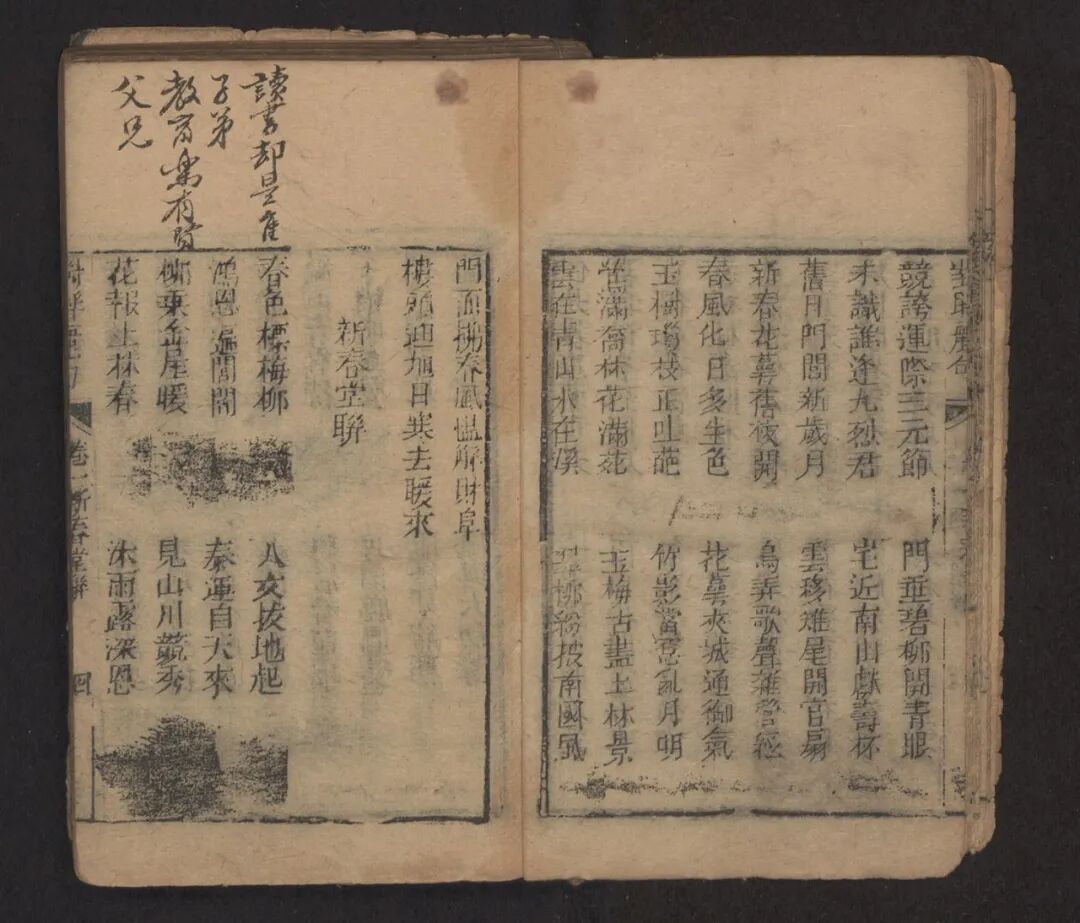 競誇運際三元節
門垂碧柳開青眼
未識誰逢九烈君
宅近南山獻壽杯
舊月門閭新歲月
雲移雉尾開宮扇
新春花萼舊夜開
鳥弄歌聲雜管絃
春風化日多生色
花萼夾城通御氣
玉樹瓊枝正吐葩
竹影當窓亂月明
鶯滿喬林花滿苑
玉梅古畫士林景
雲在青山水在溪
柳紛披南國風
讀書却是佳
子弟
教育樂有賢
父兄
門面拂春風慍解財阜
樓頭迎旭日寒去暖來
新春堂聯
春色標梅柳
人文拔地起
鴻恩遍閭閻
泰運自天來
柳東屋暖
見山川競秀
花報上林春
沐雨露深恩
卷一新春堂聯
四